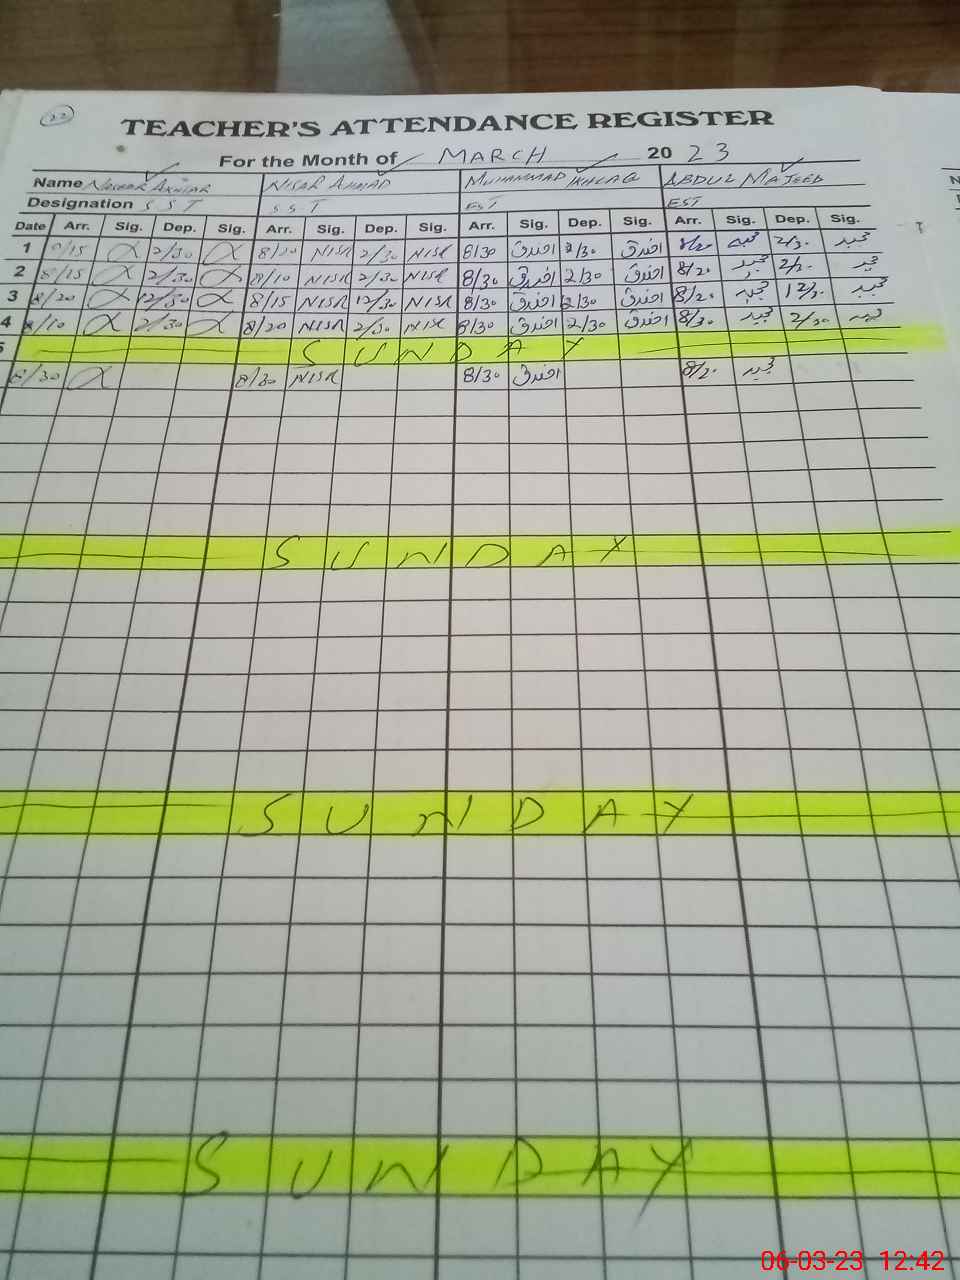 22
TEACHER'S ATTENDANCE REGISTER
For the Month of MARCH 2023
Name AKHTAR NISAR AHMAD MUHAMMAD IKHLAQ ABDUL MAJEED
Designation SST SST EST EST
Date Arr. Sig. Dep. Sig. Arr. Sig. Dep. Sig. Arr. Sig. Dep. Sig. Arr. Sig. Dep. Sig.
1 8/15 2/30 8/20 NISR 2/30 NISR 8/30 2/30 2/30 مجید
2 8/15 2/30 8/10 NISR 2/30 NISR 8/30 2/30 8/20 مجید 2/30 مجید
3 8/20 12/30 8/15 NISR 12/30 NISR 8/30 12/30 8/20 مجید 12/30 مجید
4 8/10 2/30 8/20 NISR 2/30 NISR 8/30 2/30 8/30 مجید 2/30 مجید
5 SUNDAY
8/30 8/30 NISR 8/30 8/20 مجید
SUNDAY
SUNDAY
SUNDAY
06-03-23 12:42